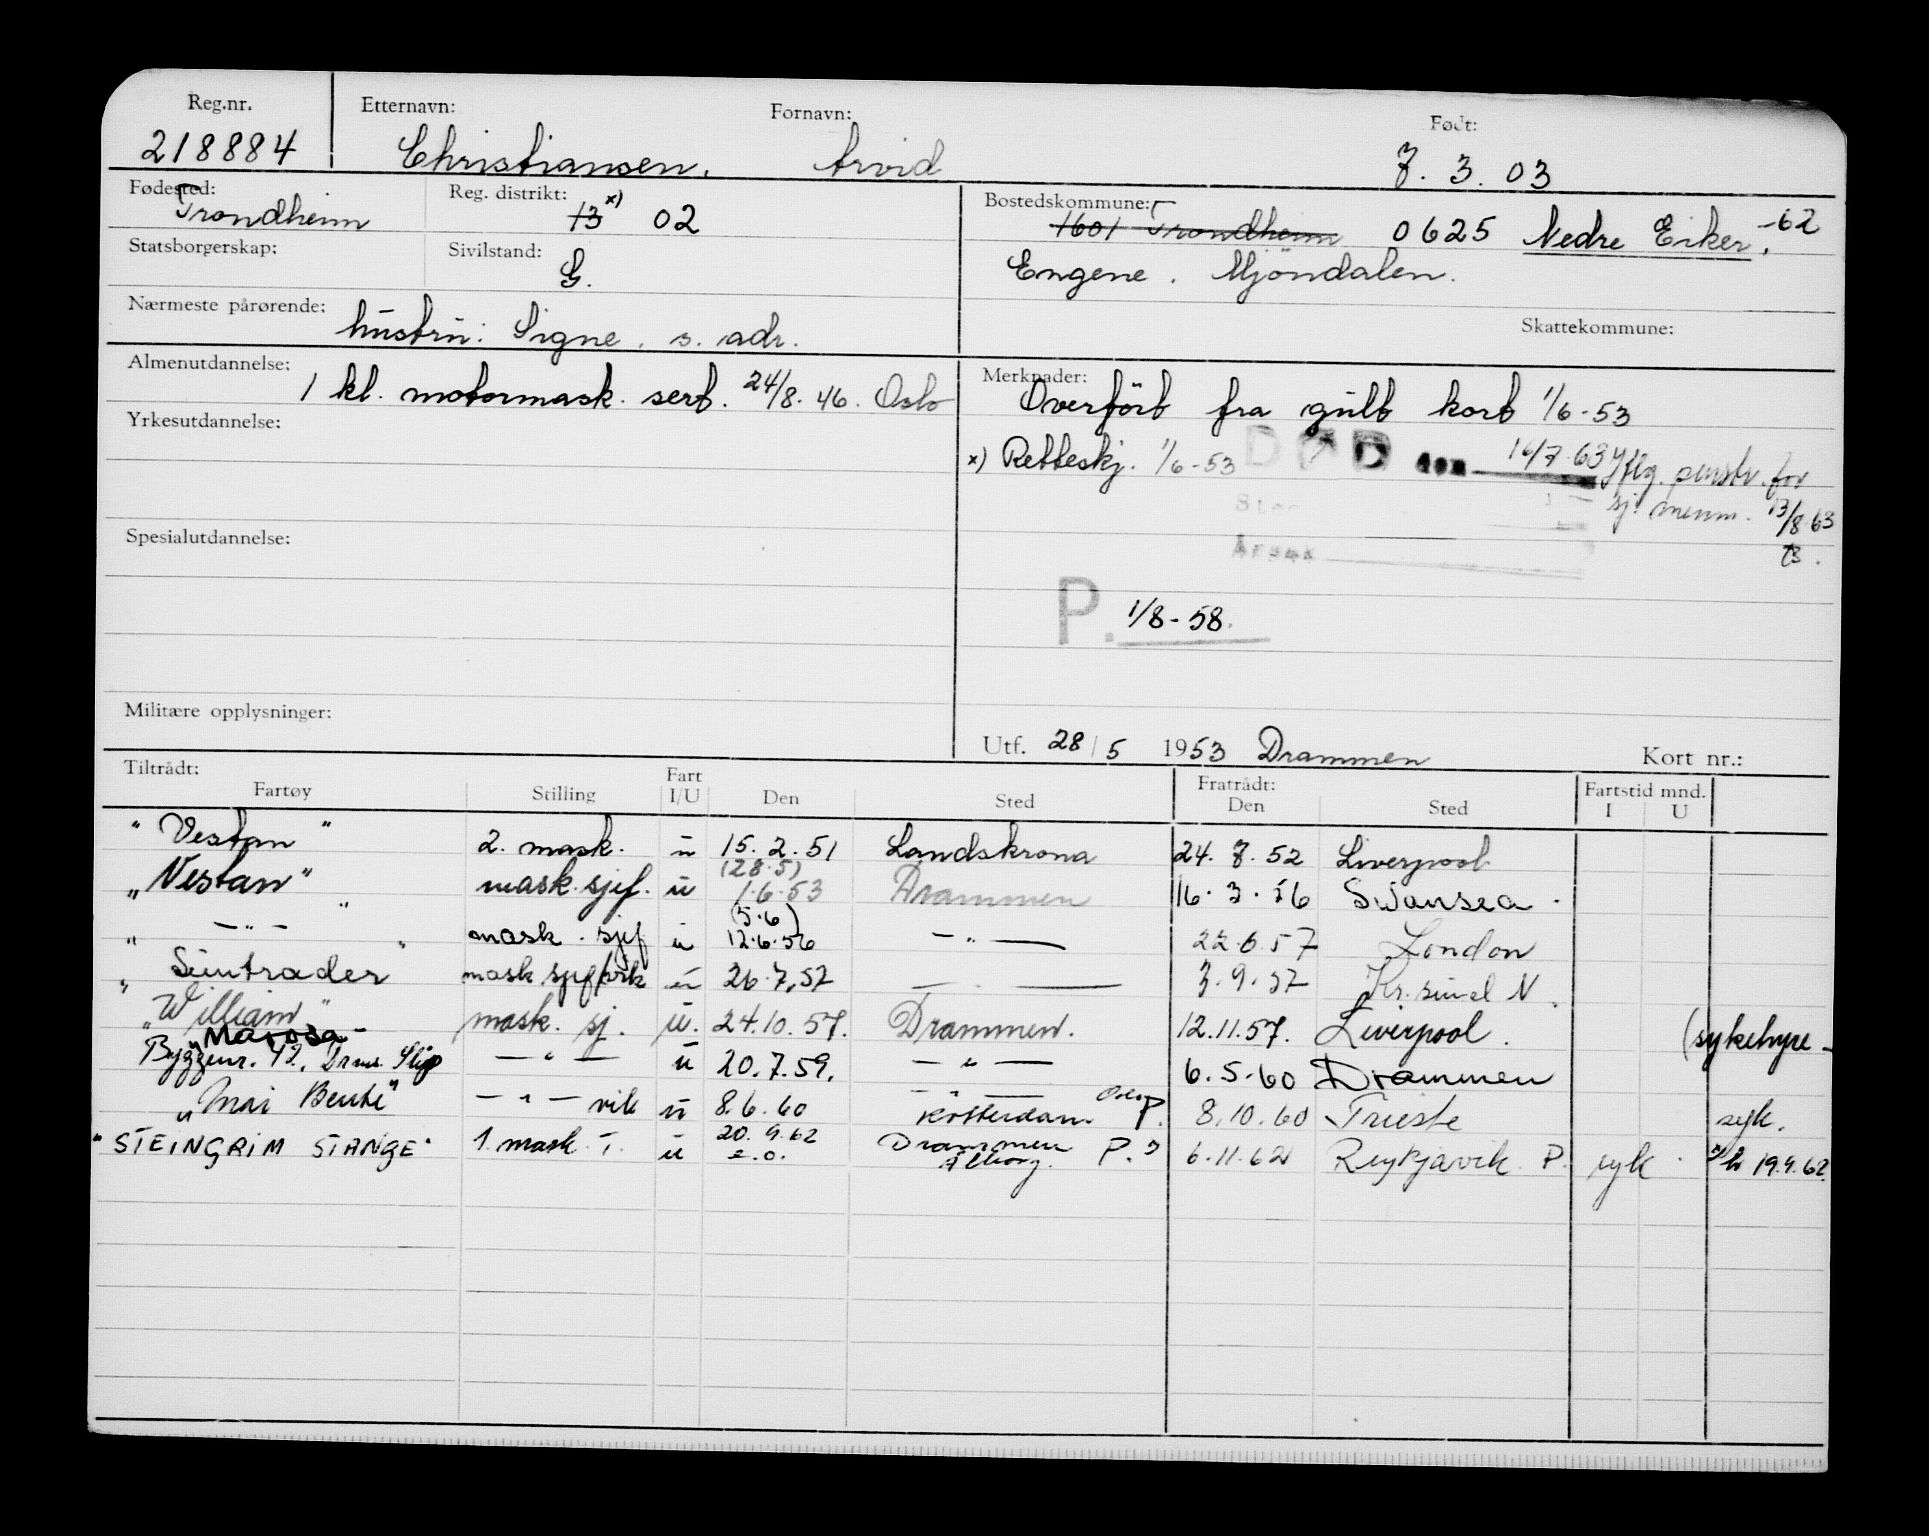 Reg.nr. Etternavn: Fornavn: Født:
218884 Christiansen, Arvid 7. 3. 03
Fødested: Reg. distrikt: Bostedskommune:
Trondheim 13 x) 02 1601 Trondheim 0625 Nedre Eiker, -62
Statsborgerskap: Sivilstand: G. Engene. Mjöndalen.
Nærmeste pårørende: Skattekommune:
hustru: Signe, s. adr.
Almenutdannelse: Merknader:
1 kl. motormask. sert. 24/8. 46. Oslo Overfört fra gult kort 1/6-53
Yrkesutdannelse: x) Retteskj. 1/6-53 DØD den 16/7-63 iflg. penstr. for
sj. menn. 13/8 63
Spesialutdannelse: Årsak
P. 1/8-58.
Militære opplysninger:
Utf. 28/5 1953 Drammen Kort nr.:
Tiltrådt: Fratrådt: Fartstid mnd.
Fartøy Stilling Fart I/U Den Sted Den Sted I U
"Vestan" 2. mask. u 15. 2. 51 Landskrona 24. 7. 52 Liverpool
"Vestan" mask. sjef. u (28.5) 1.6.53 Drammen 16. 3. 56 Swansea.
" — " — " mask. sjef u (5.6) 12.6.56 — " — 22.6.57 London
" Suntrader " mask sjef vik u 26.7.57 — " — 3.9.57 Kr.sund N.
"William" mask. sj. u. 24.10.57. Drammen. 12.11.57. Liverpool. (sykehyre -
"Marosa"
Byggenr. 42, Drms. Slip — " — u 20.7.59. — " — 6.5.60 Drammen
"Mai Bente" — " — vik u 8.6.60 — " — Rotterdam Oslo P. 8.10.60 Trieste syk.
"STEINGRIM STANGE" 1. mask. T. u 20.9.62 e.o. Drammen Ålborg. P. 6.11.62 Reykjavik P. syk. 19.9.62.